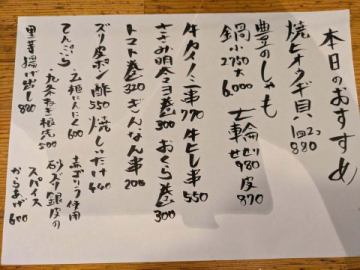 本日のおすすめ
焼ヒオウギ貝 1皿2コ 880
豊のしゃも
鍋 小2750 大6,000
七輪 せせり980 皮870
牛カイノミ串770 牛ヒレ串550
ささみ明太子巻300 おくら巻300
トマト巻320 ぎんなん串200
ズリ皮ポン酢550 焼しいたけ440
てんぷら 玉姫にんにく600
九条ねぎ 500
赤ぶりっ子使用
砂ズリ銀皮のスパイスからあげ600
里芋揚げ出し880